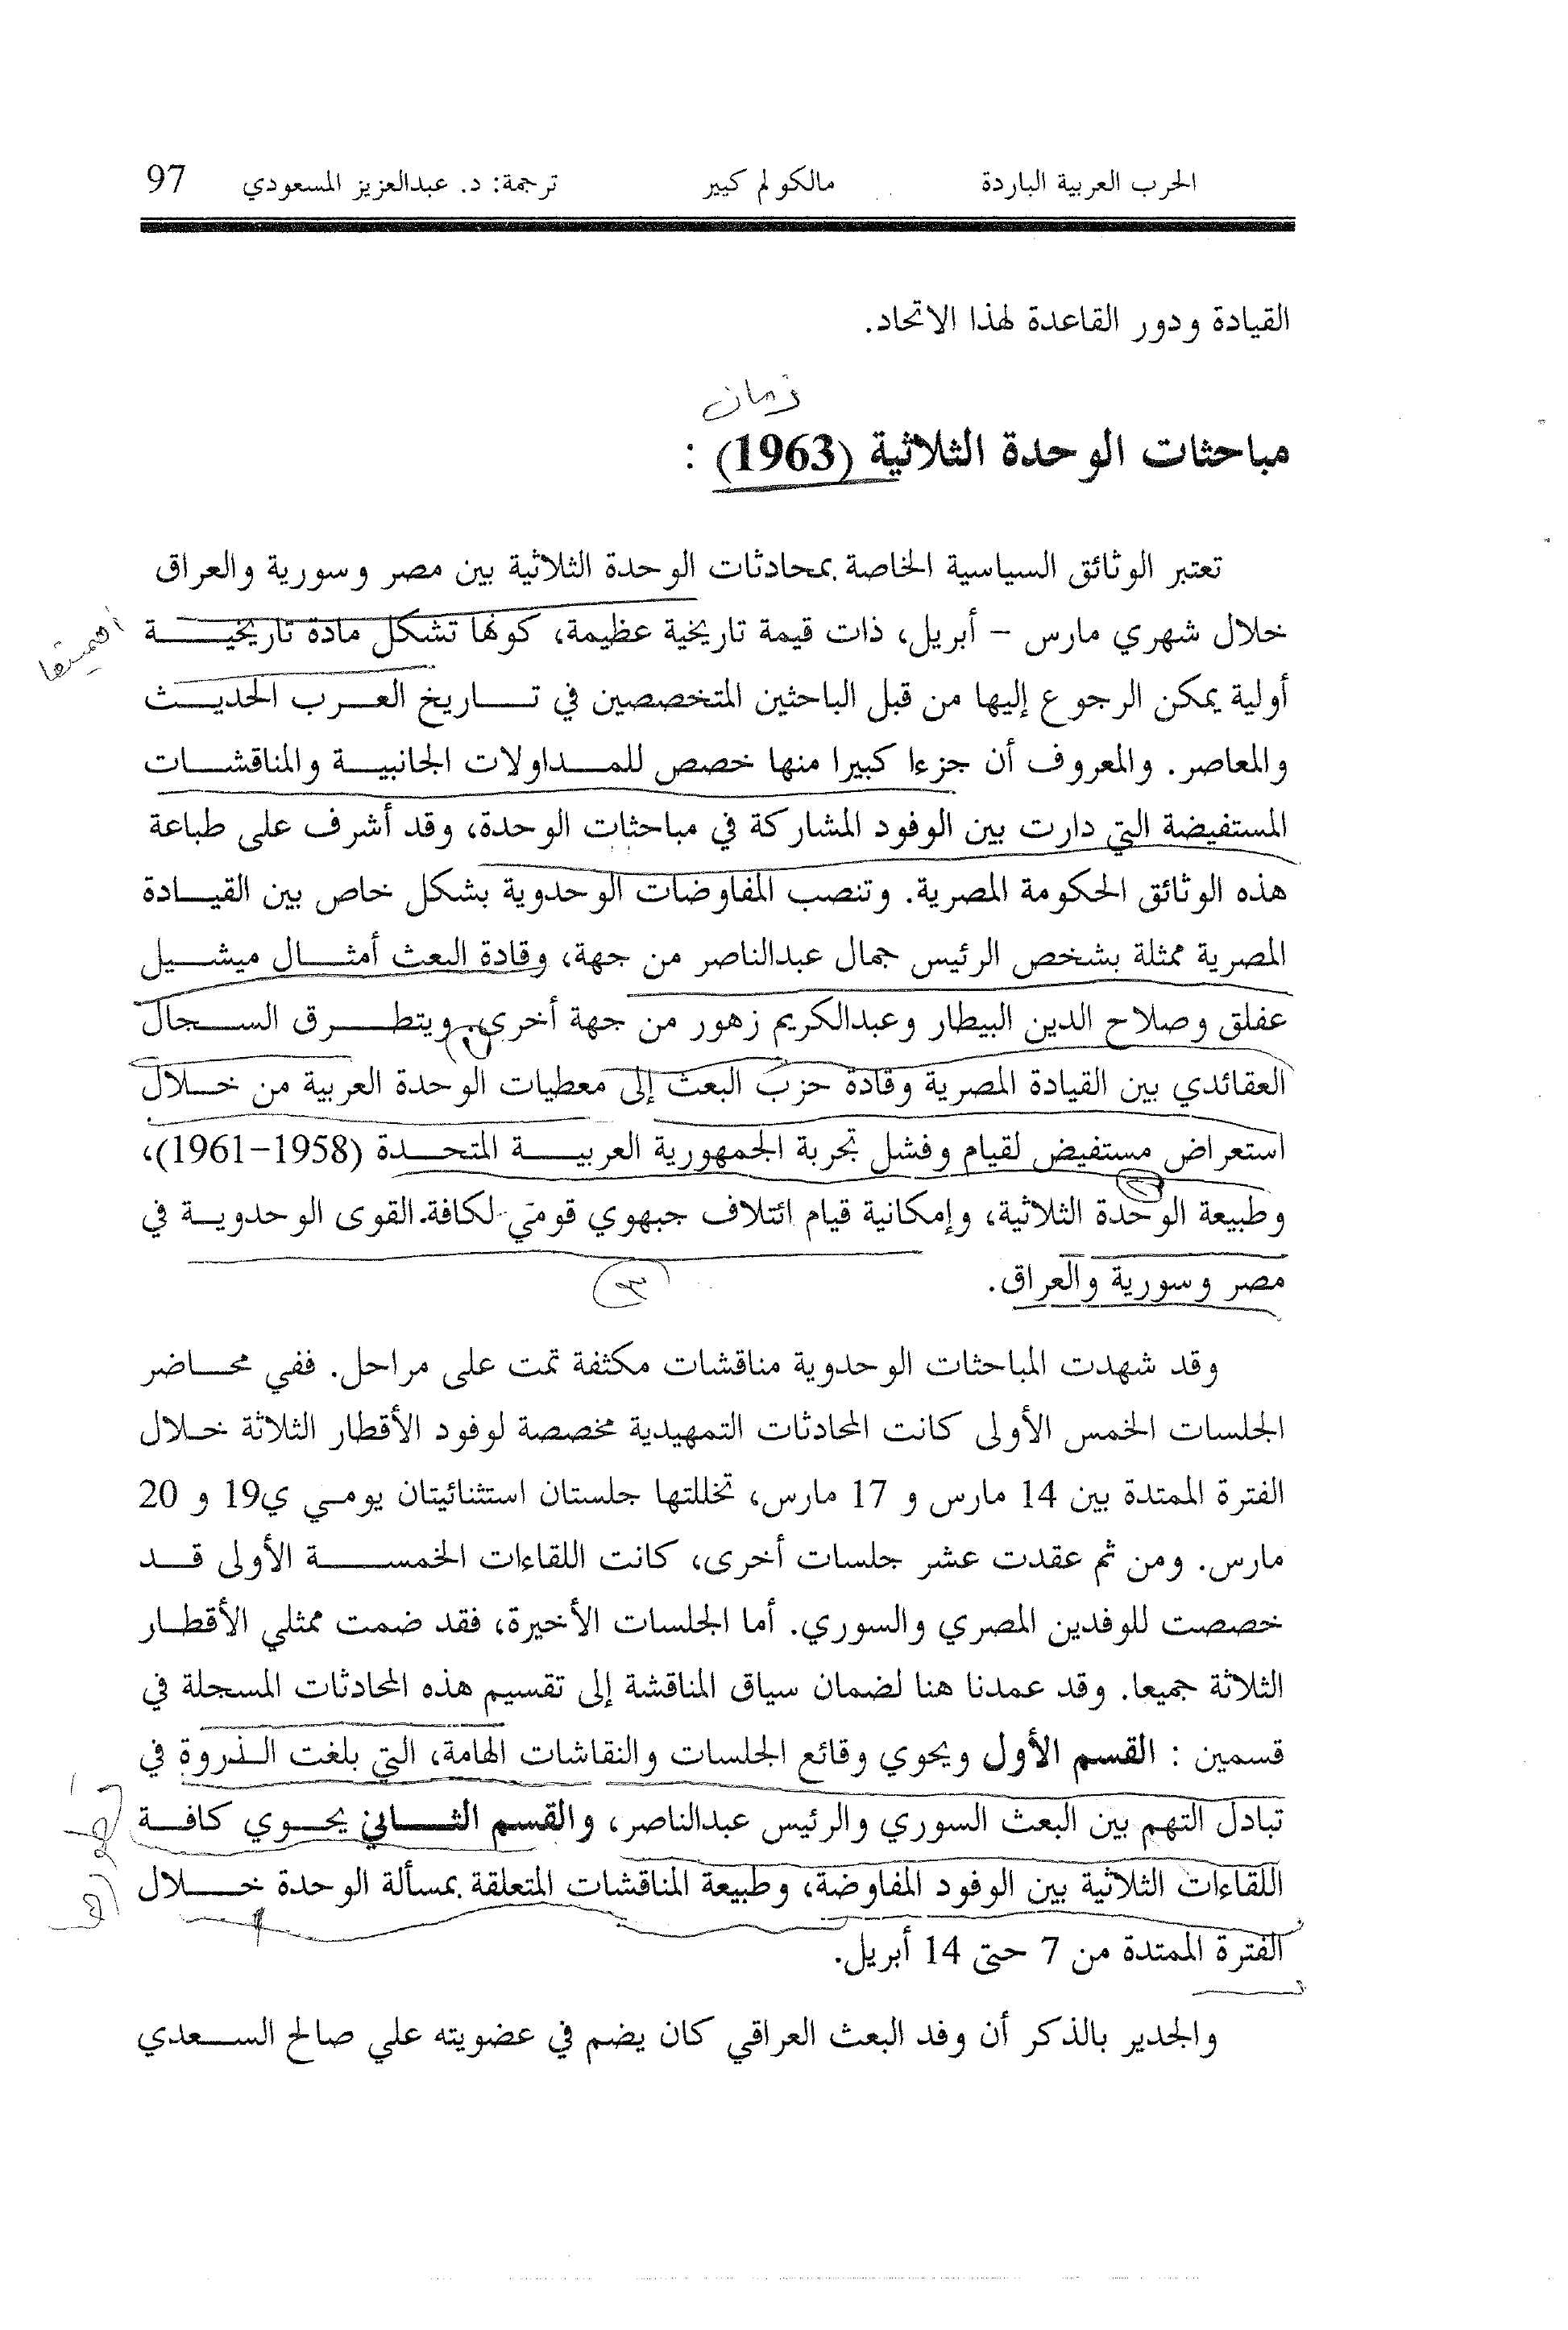 الحرب العربية الباردة مالكولم كيير ترجمة: د. عبدالعزيز المسعودي 97
القيادة ودور القاعدة لهذا الاتحاد.
زمان
مباحثات الوحدة الثلاثية (1963) :
تعتبر الوثائق السياسية الخاصة بمحادثات الوحدة الثلاثية بين مصر وسورية والعراق
خلال شهري مارس – أبريل، ذات قيمة تاريخية عظيمة، كونها تشكل مادة تاريخية
أهميتها
أولية يمكن الرجوع إليها من قبل الباحثين المتخصصين في تاريخ العرب الحديث
والمعاصر. والمعروف أن جزءا كبيرا منها خصص للمداولات الجانبية والمناقشات
المستفيضة التي دارت بين الوفود المشاركة في مباحثات الوحدة، وقد أشرف على طباعة
هذه الوثائق الحكومة المصرية. وتنصب المفاوضات الوحدوية بشكل خاص بين القيادة
المصرية ممثلة بشخص الرئيس جمال عبدالناصر من جهة، وقادة البعث أمثال ميشيل
عفلق وصلاح الدين البيطار وعبدالكريم زهور من جهة أخرى. ويتطرق السجال
العقائدي بين القيادة المصرية وقادة حزب البعث إلى معطيات الوحدة العربية من خلال
استعراض مستفيض لقيام وفشل تجربة الجمهورية العربية المتحدة (1958–1961)،
وطبيعة الوحدة الثلاثية، وإمكانية قيام ائتلاف جبهوي قومي لكافة القوى الوحدوية في
مصر وسورية والعراق.
٣
وقد شهدت المباحثات الوحدوية مناقشات مكثفة تمت على مراحل. ففي محاضر
الجلسات الخمس الأولى كانت المحادثات التمهيدية مخصصة لوفود الأقطار الثلاثة خلال
الفترة الممتدة بين 14 مارس و 17 مارس، تخللتها جلستان استثنائيتان يومي ي19 و 20
مارس. ومن ثم عقدت عشر جلسات أخرى، كانت اللقاءات الخمسة الأولى قد
خصصت للوفدين المصري والسوري. أما الجلسات الأخيرة، فقد ضمت ممثلي الأقطار
الثلاثة جميعا. وقد عمدنا هنا لضمان سياق المناقشة إلى تقسيم هذه المحادثات المسجلة في
قسمين : القسم الأول ويحوي وقائع الجلسات والنقاشات الهامة، التي بلغت الذروة في
تبادل التهم بين البعث السوري والرئيس عبدالناصر، والقسم الثاني يحوي كافة
اللقاءات الثلاثية بين الوفود المفاوضة، وطبيعة المناقشات المتعلقة بمسألة الوحدة خلال
الفترة الممتدة من 7 حتى 14 أبريل.
والجدير بالذكر أن وفد البعث العراقي كان يضم في عضويته علي صالح السعدي